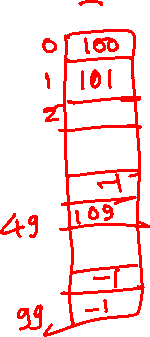 0 100
1 101
2
-1
49 109
-1
99 -1